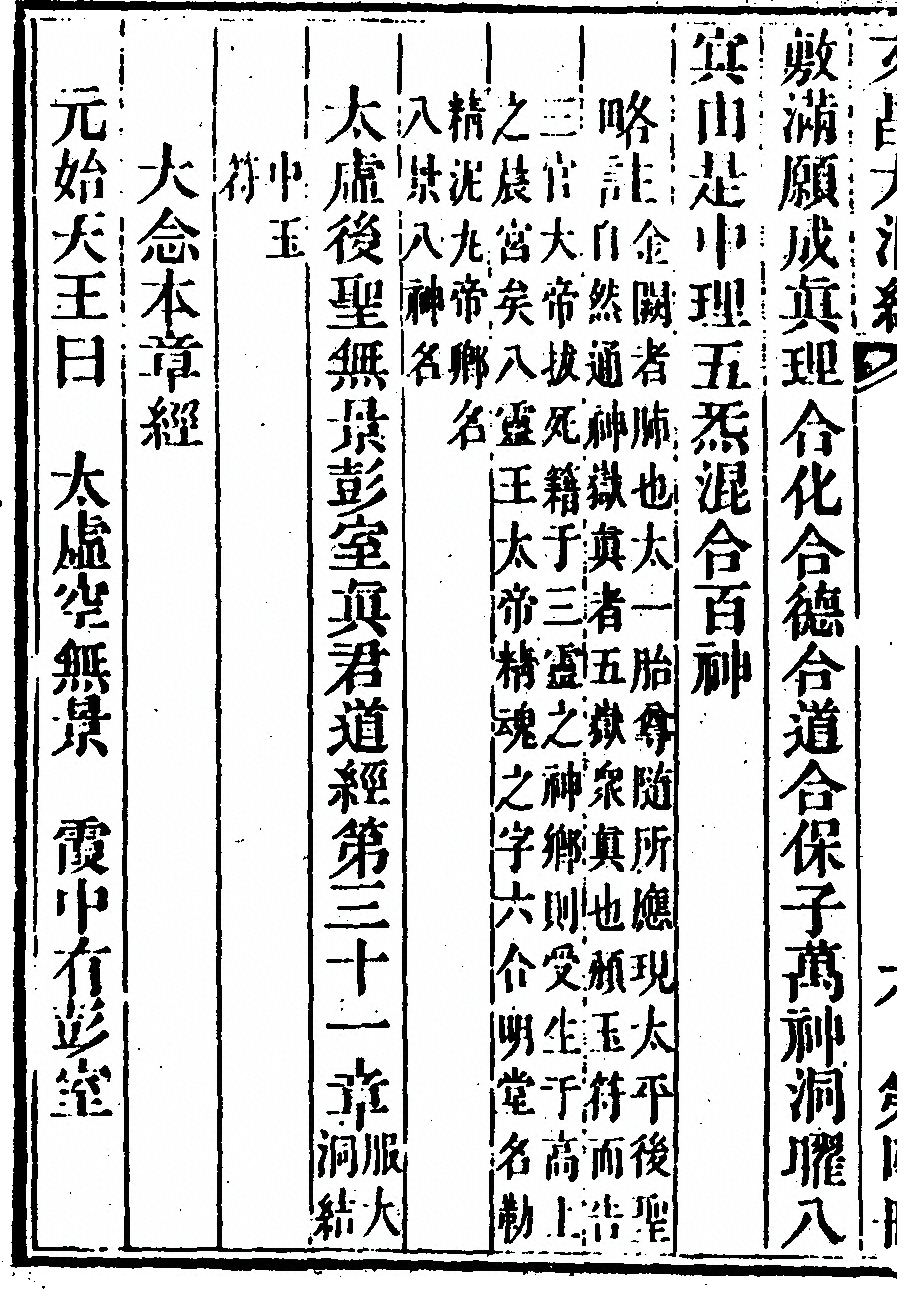 敷滿願成眞理合化合德合道合保子萬神洞曜八
㝠由是中理五炁混合百神
略註
金闕者肺也太一胎尊隨所應現太平後聖
自然通神獄眞者五獄衆眞也願玉符而告
三官大帝拔死籍于三靈之神鄉則受生于高上
之晨宮矣八靈王太帝精魂之字六介明堂名勒
精泥九帝鄉名
八景八神名
太虛後聖無景彭室眞君道經第三十一章
服大
洞結
中玉
符
大念本章經
元始天王曰　太虛空無景　霞中有彭室